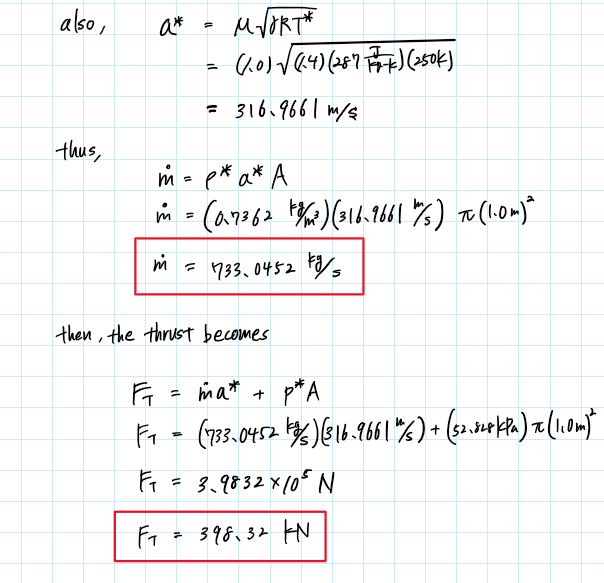 also, a* = M√(γRT*)
= (1.0)√((1.4)(287 J/kg-K)(250K))
= 316.9661 m/s
thus,
ṁ = ρ* a* A
ṁ = (0.7362 kg/m³)(316.9661 m/s) π(1.0m)²
ṁ = 733.0452 kg/s
then, the thrust becomes
F_T = ṁa* + p*A
F_T = (733.0452 kg/s)(316.9661 m/s) + (52.828 kPa) π(1.0m)²
F_T = 3.9832×10⁵ N
F_T = 398.32 kN